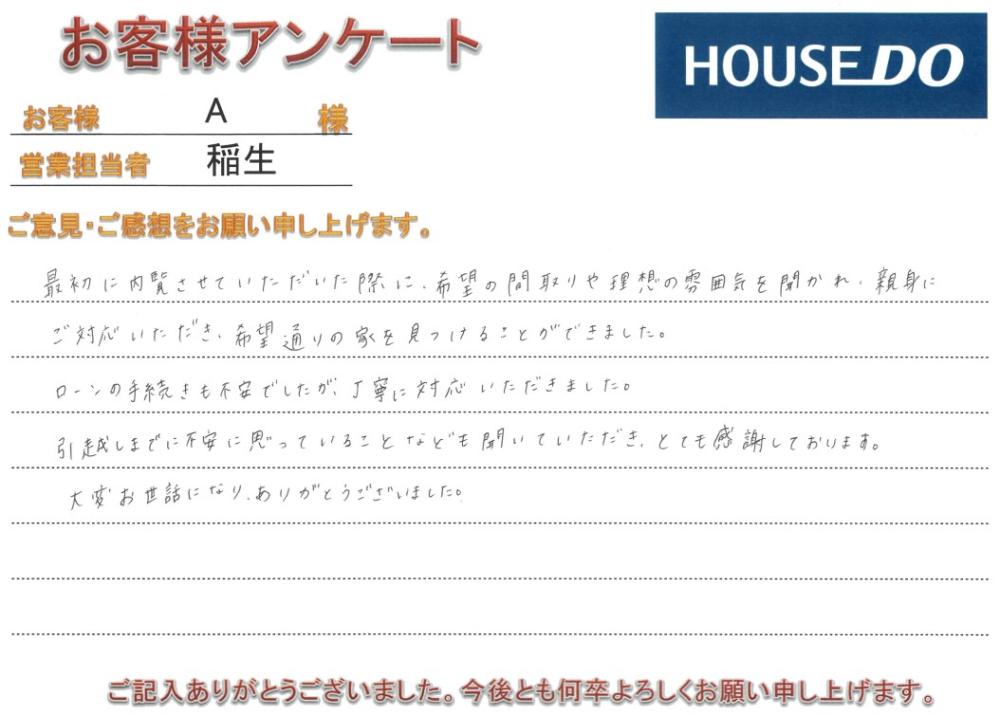 お客様アンケート
HOUSE DO
お客様 A 様
営業担当者 稲生
ご意見・ご感想をお願い申し上げます。
最初に内覧させていただいた際に、希望の間取りや理想の雰囲気を聞かれ、親身に
ご対応いただき、希望通りの家を見つけることができました。
ローンの手続きも不安でしたが、丁寧に対応いただきました。
引越しまでに不安に思っていることなども聞いていただき、とても感謝しております。
大変お世話になり、ありがとうございました。
ご記入ありがとうございました。今後とも何卒よろしくお願い申し上げます。